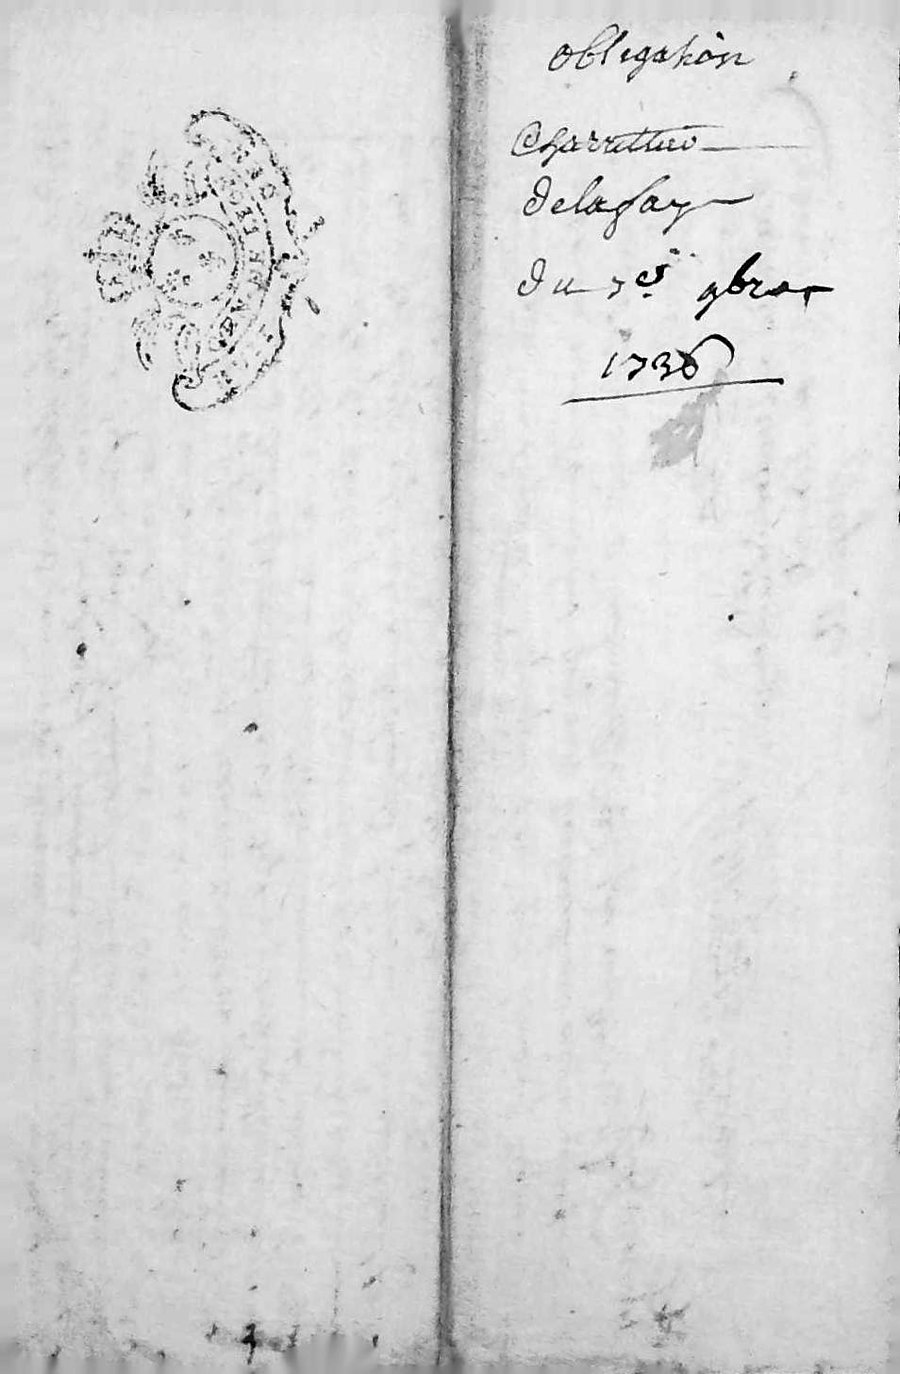 obligation
Charrettier
delafay
du 7e 9bre
1736